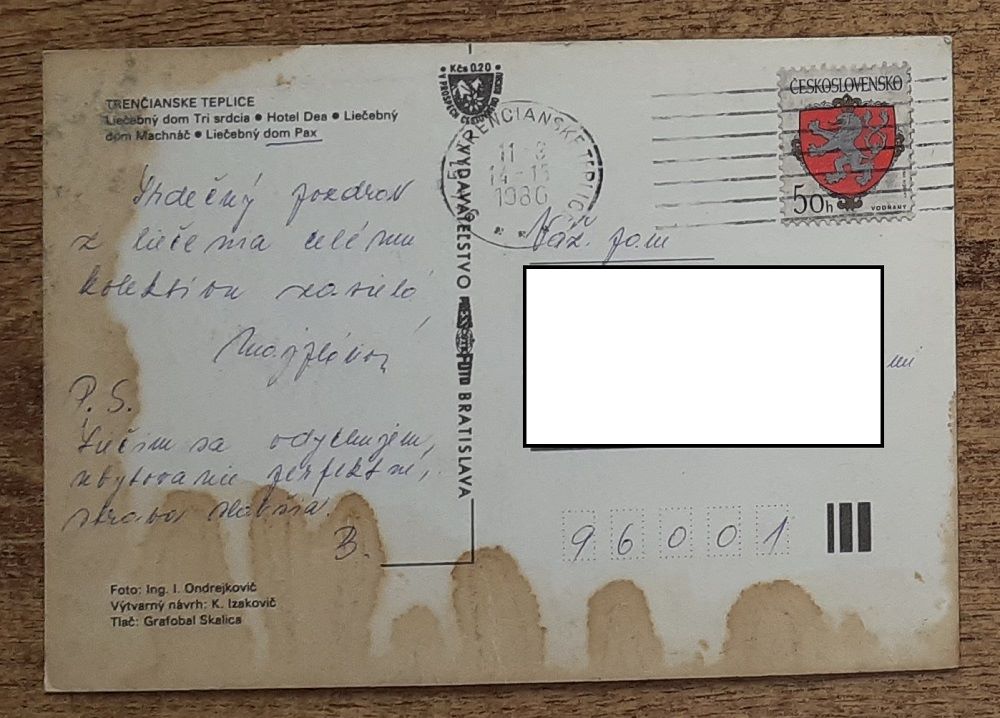 TRENČIANSKE TEPLICE
Liečebný dom Tri srdcia • Hotel Dea • Liečebný
dom Machnáč • Liečebný dom Pax
Srdečný pozdrav
z liečenia celému
kolektívu zasiela
P. S.
Liečim sa, odychujem,
ubytovanie perfektné,
strava slabšia.
B.
Foto: Ing. I. Ondrejkovič
Výtvarný návrh: K. Izakovič
Tlač: Grafobal Skalica
Kčs 0.20
V PROSPECH CESTOVNÉHO RUCHU
VYDAVATEĽSTVO
BRATISLAVA
TRENČIANSKE TEPLICE
14-15
1986
ČESKOSLOVENSKO
50h
VODŇANY
Váž. pani
96001